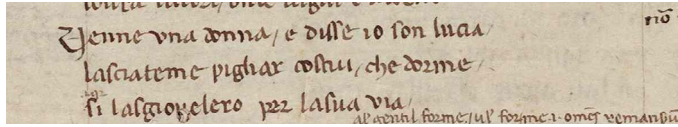 nō
Venne vna donna / e disse io son lucia /
lasciateme pigliar costui / che dorme /
si lasgiouelero per lasua via /
al gentil forme / ul forme .i. omēs remansūt